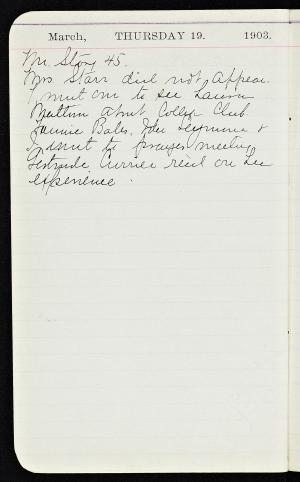 March, THURSDAY 19. 1903.
Mr. Story 45.
Mrs Starr did not appear.
I went over to see Laura
about College Club.
Fannie Bates, Ida Seymour &
I went to prayer meeting
Gertrude Currier on her
experience.